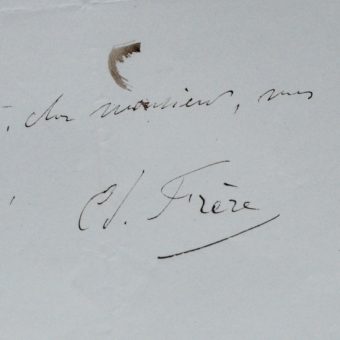 , cher monsieur, mes
,
Ed. Frère